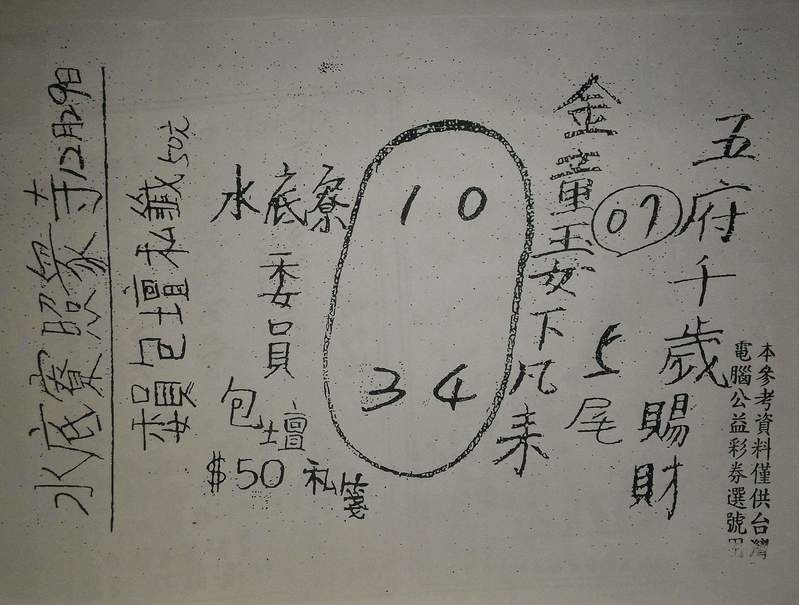 本參考資料僅供台灣
電腦公益彩券選號
五府千歲賜財
07
5尾
金童玉女下凡來
10
34
水底寮
委員
包壇
$50 私箋
賴包壇私籤50元
水底寮照象寺12月29日